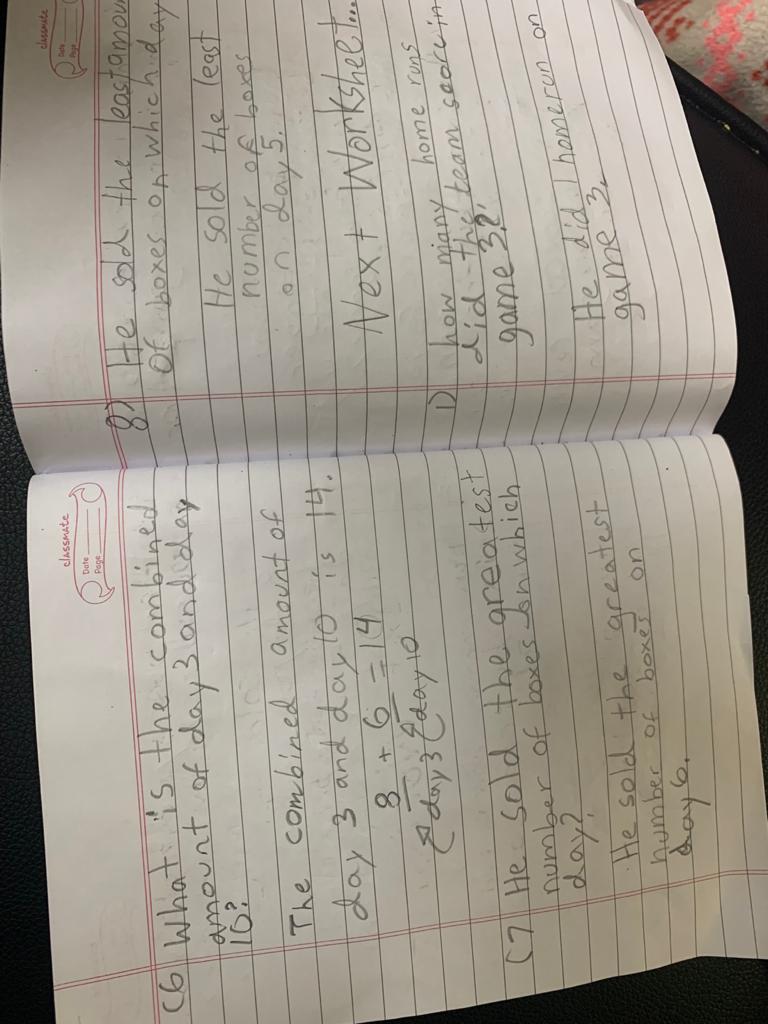 classmate
Date
Page
(6 What is the combined
amount of day 3 and day
10?
The combined amount of
day 3 and day 10 is 14.
8 + 6 = 14
day 3 day 10
(7 He sold the greatest
number of boxes on which
day?
He sold the greatest
number of boxes on
day 6.
classmate
Date
Page
8) He sold the least amou
of boxes on which day
He sold the least
number of boxes
on day 5.
Next Worksheet...
1) how many home runs
did the team score in
game 3?
He did 1 homerun on
game 3.